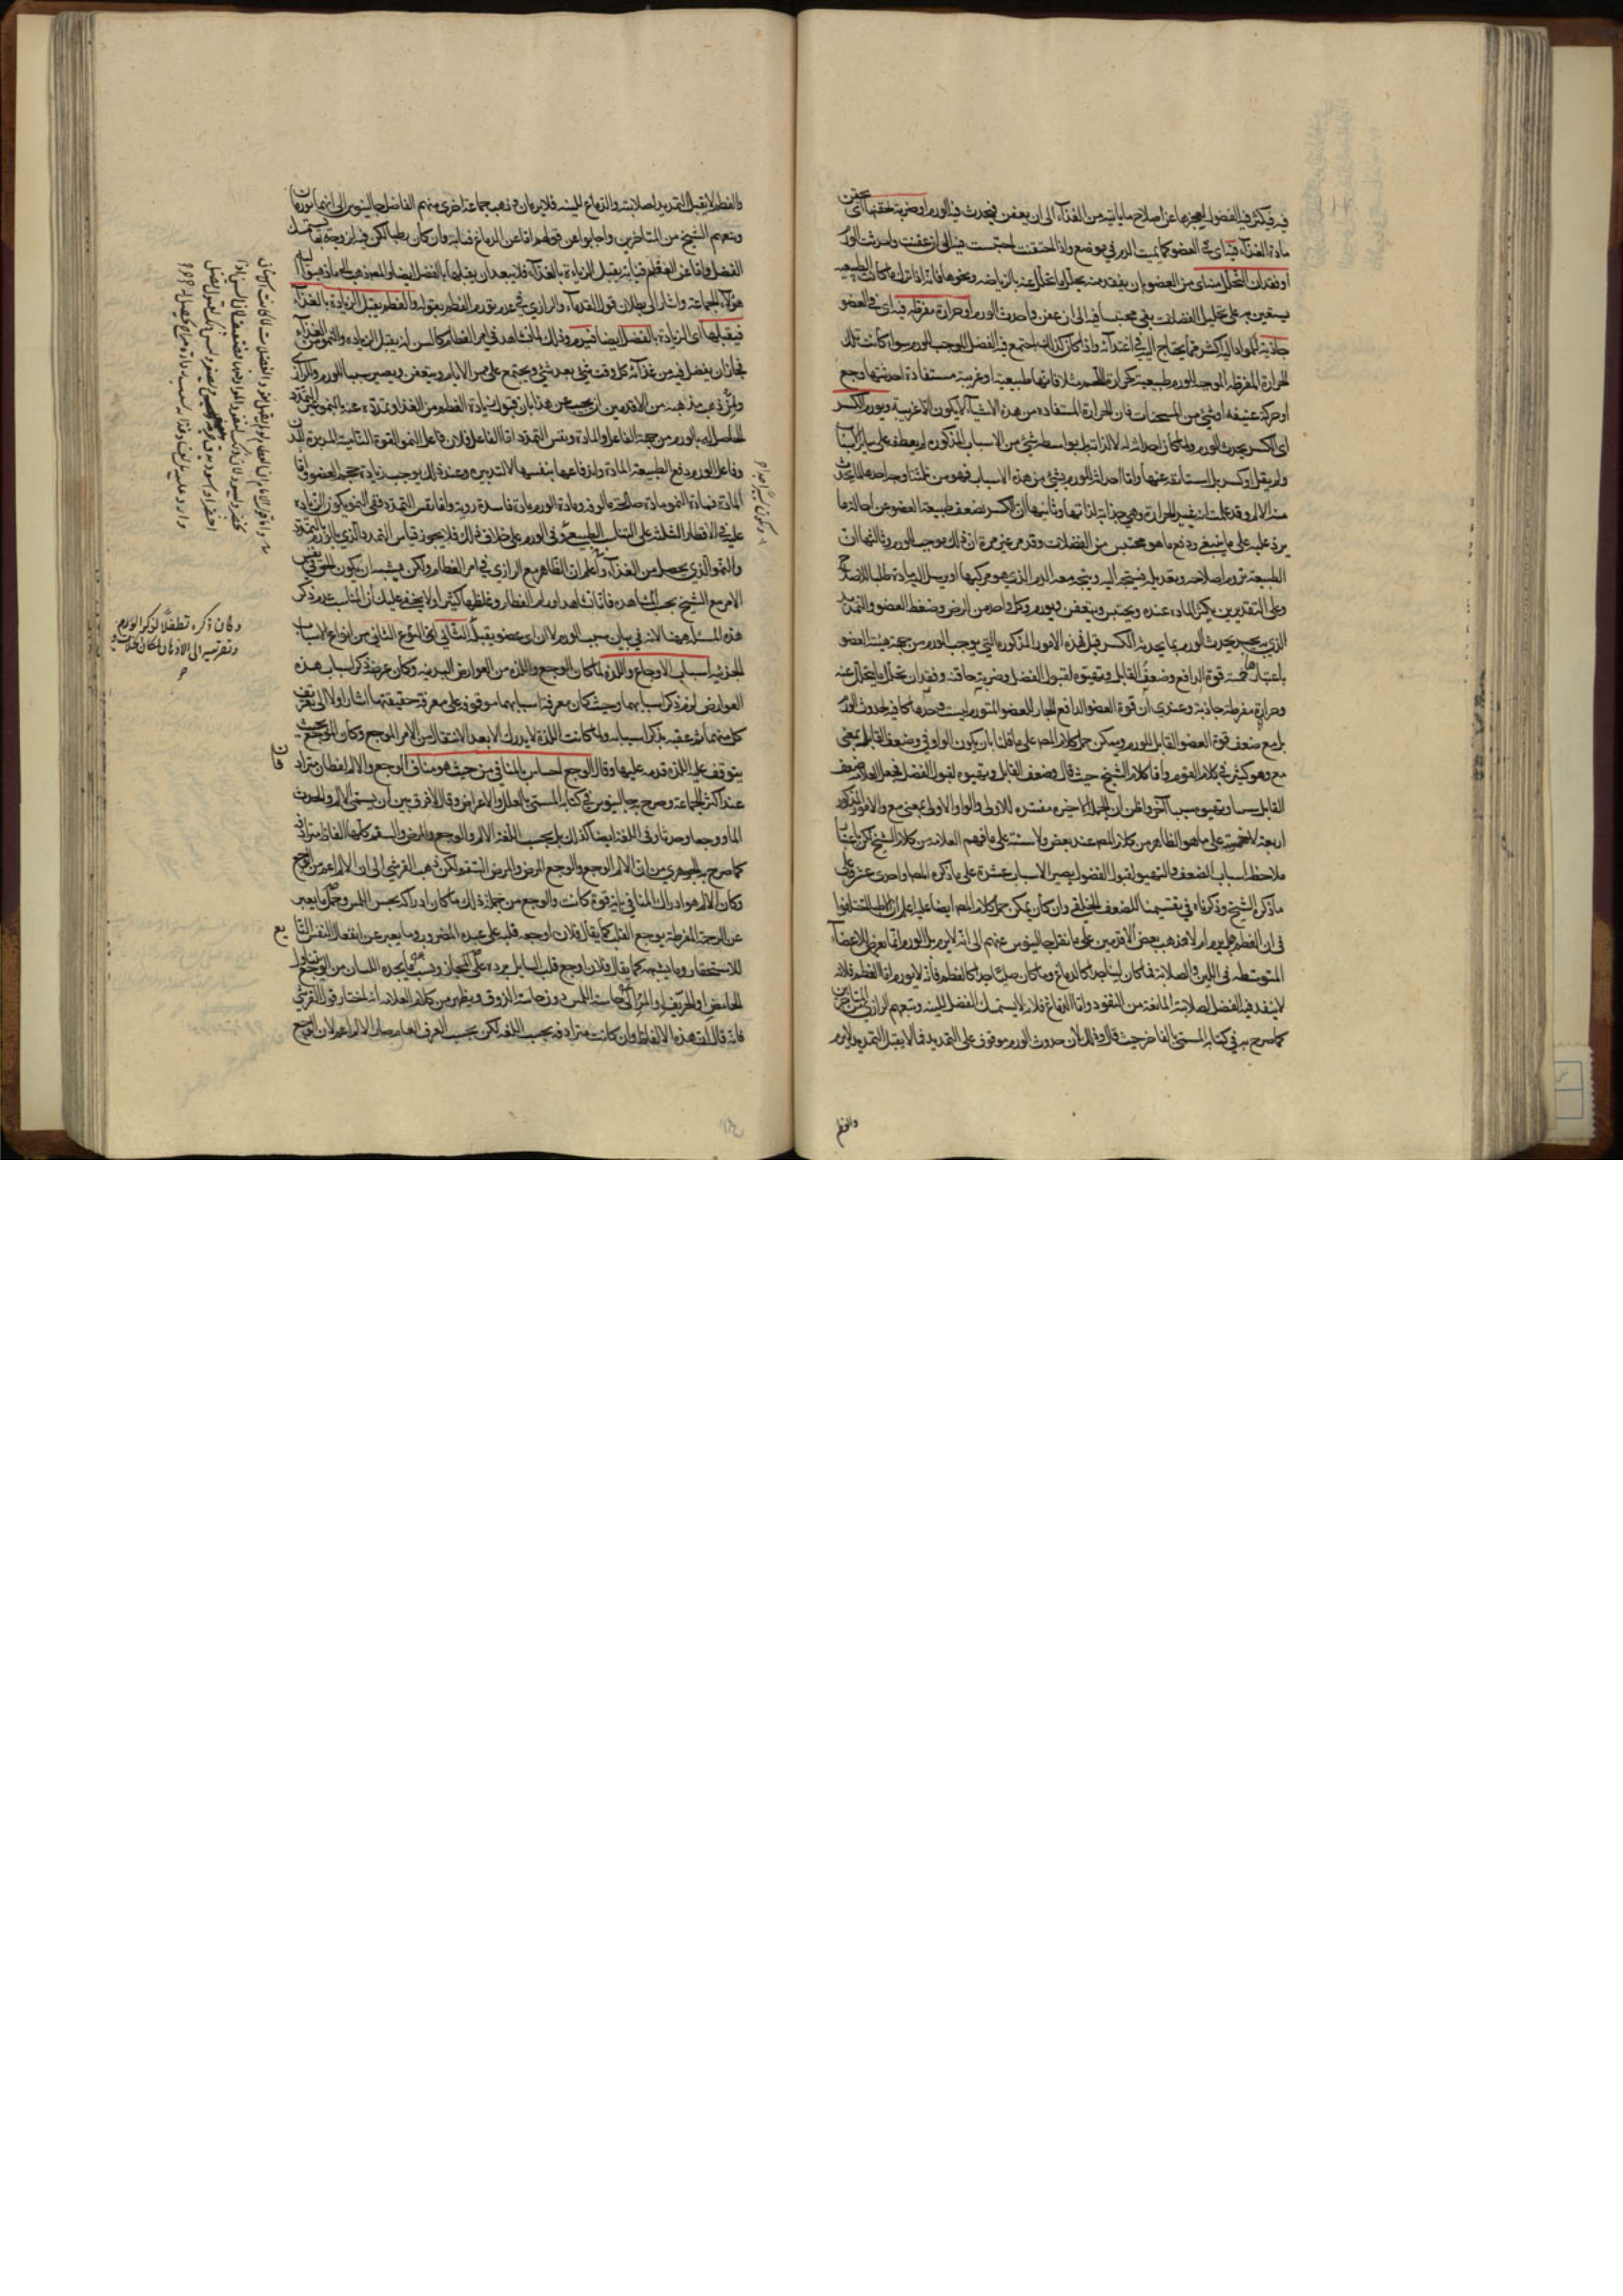 فيه فيكثر فيه الفضول لعجزها عن اصلاح ما ياتيه من الغذاء الى ان يعفن فيحدث فيه الورم او ضربة تحقنها اى
مادة الغذاء فيه اى فى العضو كما يميت الدم فى موضع واذا احتقنت احتبست فيه الى ان عفنت واحدثت الورم
او فقدان التحلل منه اى من العضو بان يفقد منه تحلل ما يتحلل عنه بالرياضة ونحوها فانه اذا ترك ما كانت الطبيعة
يستعين به على تحليل الفضلات بقى محتبسا فيه الى ان عفن واحدث الورم او حرارة مفرطة فيه اى فى العضو
جاذبة للمواد اليه اكثر مما يحتاج اليه فى اغتذائه واذا كان كذلك اجتمع فيه الفضل الموجب للورم سواء كانت تلك
الحرارة المفرطة الموجبة للورم طبيعية كحرارة اللحم مثلا فانها طبيعية او غريبة مستفادة احدثتها وجع
او حركة عنيفة او شىء من المسخنات فان الحرارة المستفادة من هذه الاشياء لا يكون الا غريبة ويورم الكسر
اى الكسر يحدث الورم ولما كان احداثه له لا لذاته بل بواسطة شىء من الاسباب المذكورة لم يعطف على سائر الاسباب
ولم يقل او كسر بل استانف عنها واما احداثه الورم بشىء من هذه الاسباب فهو من ثلثة اوجه احدها انه يحدث
منه الالم وقد علمت انه يثير الحرارة وهى جذابة لذاتها وثانيها ان الكسر يضعف طبيعة العضو عن احالة ما
يرد عليه على ما ينبغى ودفع ما هو محتبس من الفضلات وقد مر غير مرة ان ذلك يوجب الورم وثالثها ان
الطبيعة تروم اصلاحه وتعديله فيتجه اليه ويتجه معه الدم الذى هو مركبها او يرسل اليه مادة طلبا للاصلاح
وعلى التقديرين يكثر المادة عنده ويحتبس ويتعفن فيورم وكل واحد من الرض وضغط العضو والتمديد
الذى يجبر يحدث الورم بما يحدثه الكسر قيل فهذه الامور المذكورة التى يوجب الورم من جهة هيئة العضو
باعتبار خمسة قوة الدافع وضعف القابل وتهيؤه لقبول الفضل وضربة حاقنة وفقدان تحلل ما يتحلل عنه
وحرارة مفرطة جاذبة وعندى ان قوة العضو الدافع الجار للعضو المتورم ليست وحدها كافية لحدوث الورم
بل مع ضعف قوة العضو القابل للورم ويمكن حمل كلام المصـ على ما قلنا بان يكون الواو فى وضعف القابل بمعنى
مع وهو كثير فى كلام القوم واما كلام الشيخ حيث قال وضعف القابل وتهيؤه لقبول الفضل فجعل العلامة ضعف
القابل سببا وتهيؤه سببا آخر واظن ان الجملة الاخيرة مفسرة للاولى والواو الاولى بمعنى مع والامور المذكورة
اربعة لا خمسة على ما هو الظاهر من كلام المصـ عند بعض ولا ستة على ما فهم العلامة من كلام الشيخ لكن باعتبار
ملاحظة اسباب الضعف والتهيؤ لقبول الفضول يصير الاسباب عشرة على ما ذكره المصـ او احدى عشر على
ما ذكره الشيخ وذكرناه فى تقسيمنا للضعف الخلقى وان كان يمكن حمل كلام المصـ ايضا عليه اعلم ان الاطباء اختلفوا
فى ان العظم هل يورم ام لا فذهب بعض الاقدمين على ما نقل جالينوس عنهم الى انه لا يرم بل الورم انما يعرض للاعضاء
المتوسطة فى اللين والصلابة فما كان لينا جدا كالدماغ وما كان صلبا جدا كالعظم فانه لا يورم اما العظم فلانه
لا ينفذ فيه الفضل لصلابته المانعة من النفوذ واما الدماغ فلانه لا يستمسك الفضل للينه وتبعهم الرازى من المتاخرين
كما صرح به فى كتابه المسمى بالفاخر حيث قال وذلك لان حدوث الورم موقوف على التمديد فما لا يقبل التمديد لا يرم
والعظم
والعظم لا يقبل التمديد لصلابته والدماغ للينه فلا يرمان وذهب جماعة اخرى منهم الفاضل جالينوس الى انهما يورمان
وتبعهم الشيخ من المتاخرين واجابوا عن قولهم اما عن الدماغ فبانه وان كان رطبا لكن فيه لزوجة بها يستمسك
الفضل واما عن العظم فبانه يقبل الزيادة بالغذاء فلا يبعد ان يقبلها بالفضل ايضا والمصـ ذهب الى ما ذهب اليه
هؤلاء الجماعة واشار الى بطلان قول القدماء والرازى فى عدم تورم العظم بقوله والعظم يقبل الزيادة بالغذاء
فيقبلها اى الزيادة بالفضل ايضا فيرم وذلك لما نشاهد فى امر العظام كالسن انه يقبل الزيادة والنمو من الغذاء
فجاز ان يفضل فيه من غذائه كل وقت شىء بعد شىء ويجتمع على مر الايام ويتعفن ويصير سببا للورم وللرازى
ولمن ذهب مذهبه من الاقدمين ان يجيب عن هذا بان قبول زيادة العظم من الغذاء وتمدده عند النمو ليس كالتمدد
الحاصل له بالورم من جهة الفاعل والمادة ونفس التمدد اما الفاعل فلان فاعل النمو القوة النامية المدبرة للبدن
وفاعل الورم دفع الطبيعة المادة واندفاعها بنفسها لا لتدبير وعند ذلك يوجب زيادة حجم العضو واما
المادة فمادة النمو مادة صالحة مألوفة ومادة الورم مادة فاسدة ردية واما نفس التمدد ففى النمو يكون الزيادة
عليه فى الاقطار الثلثة على التناسب الطبيعى وفى الورم على خلاف ذلك فلا يجوز قياس التمدد الذى بالورم بالتمدد
والنمو الذى يحصل من الغذاء واعلم ان الظاهر مع الرازى فى امر العظام ولكن يشبه ان يكون الحق فى نفس
الامر مع الشيخ بحسب المشاهدة فانا نشاهد اورام العظام وغلظها كثيرا ولا يخفى عليك ان المناسب عدم ذكر
هذه المسئلة ههنا لانه فى بيان سبب الورم لا ان اى عضو يقبله الثانى اى النوع الثانى من انواع الاسباب
الجزئية اسباب الاوجاع واللذة لما كان الوجع واللذة من العوارض البدنية وكان غرضه ذكر اسباب هذه
العوارض لزم ذكر اسبابهما وحيث كان معرفة اسبابهما موقوفة على معرفة حقيقتهما اشار اولا الى تعريف
كل منهما ثم عقبه بذكر اسبابه ولما كانت اللذة لا يدرك الا بعد الانتقال من الامر الموجع وكان الوجع بحيث
يتوقف عليه اللذة قدمه عليها وقال الوجع احساس بالمنافى من حيث هو مناف الوجع والالم لفظان مترادفان
عند اكثر الجماعة وصرح به جالينوس فى كتابه المسمى بالعلل والاعراض وقال لا فرق بين ان يسمى الالم والحادث
الما او وجعا وحزنا وفى اللغة ايضا كذلك بل بحسب اللغة الالم والوجع والمرض والسقم كلها الفاظ مترادفة
كما صرح به الجوهرى من ان الالم الوجع والوجع المرض والمرض السقم لكن ذهب القرشى الى ان الالم اعم من الوجع
وكان الالم هو ادراك المنافى باية قوة كانت والوجع من جملة ذلك ما كان ادراكه بحس اللمس وحمل ما يعبر
عن الرحمة المفرطة بوجع القلب كما يقال فلان اوجعه قلبه على عبده المضرور وما يعبر عن انفعال النفس التابع
للاستحقار وما يشبهه كما يقال فلان اوجع قلب السايل برده على المجاز ونسب ما يجده اللسان من الوجع عند تناول
الحامض او الحريف او المر الى حاسة اللمس دون حاسة الذوق ويظهر من كلام العلامة انه اختار قول القرشى
فانه قال ان هذه الالفاظ وان كانت مترادفة بحسب اللغة لكن بحسب العرف العام صار الالم اعم لان الوجع
وكان ذكره تطفلا لذكر الورم